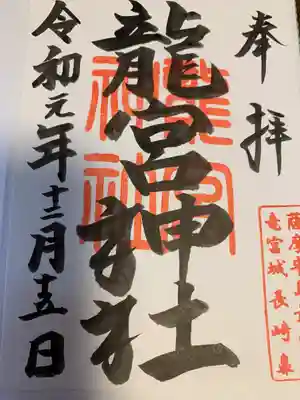 奉拝
龍宮神社
令和元年十二月十五日
龍宮
神社
竜宮城長崎鼻